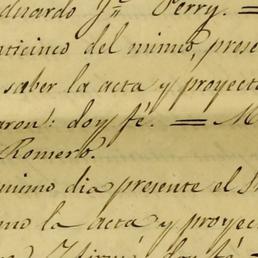 duardo Y. Perry. =
nticinco del mismo, prese
saber la acta y proyecto
aron: doy fé. = M
Romero.
mismo dia presente el S
mo la acta y proyec
doy fé =